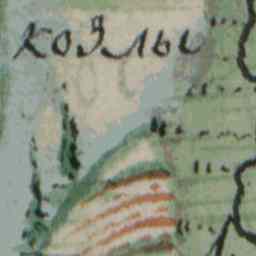 козлы